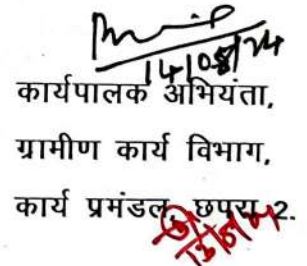 14/08/24
कार्यपालक अभियंता,
ग्रामीण कार्य विभाग,
कार्य प्रमंडल, छपरा 2.